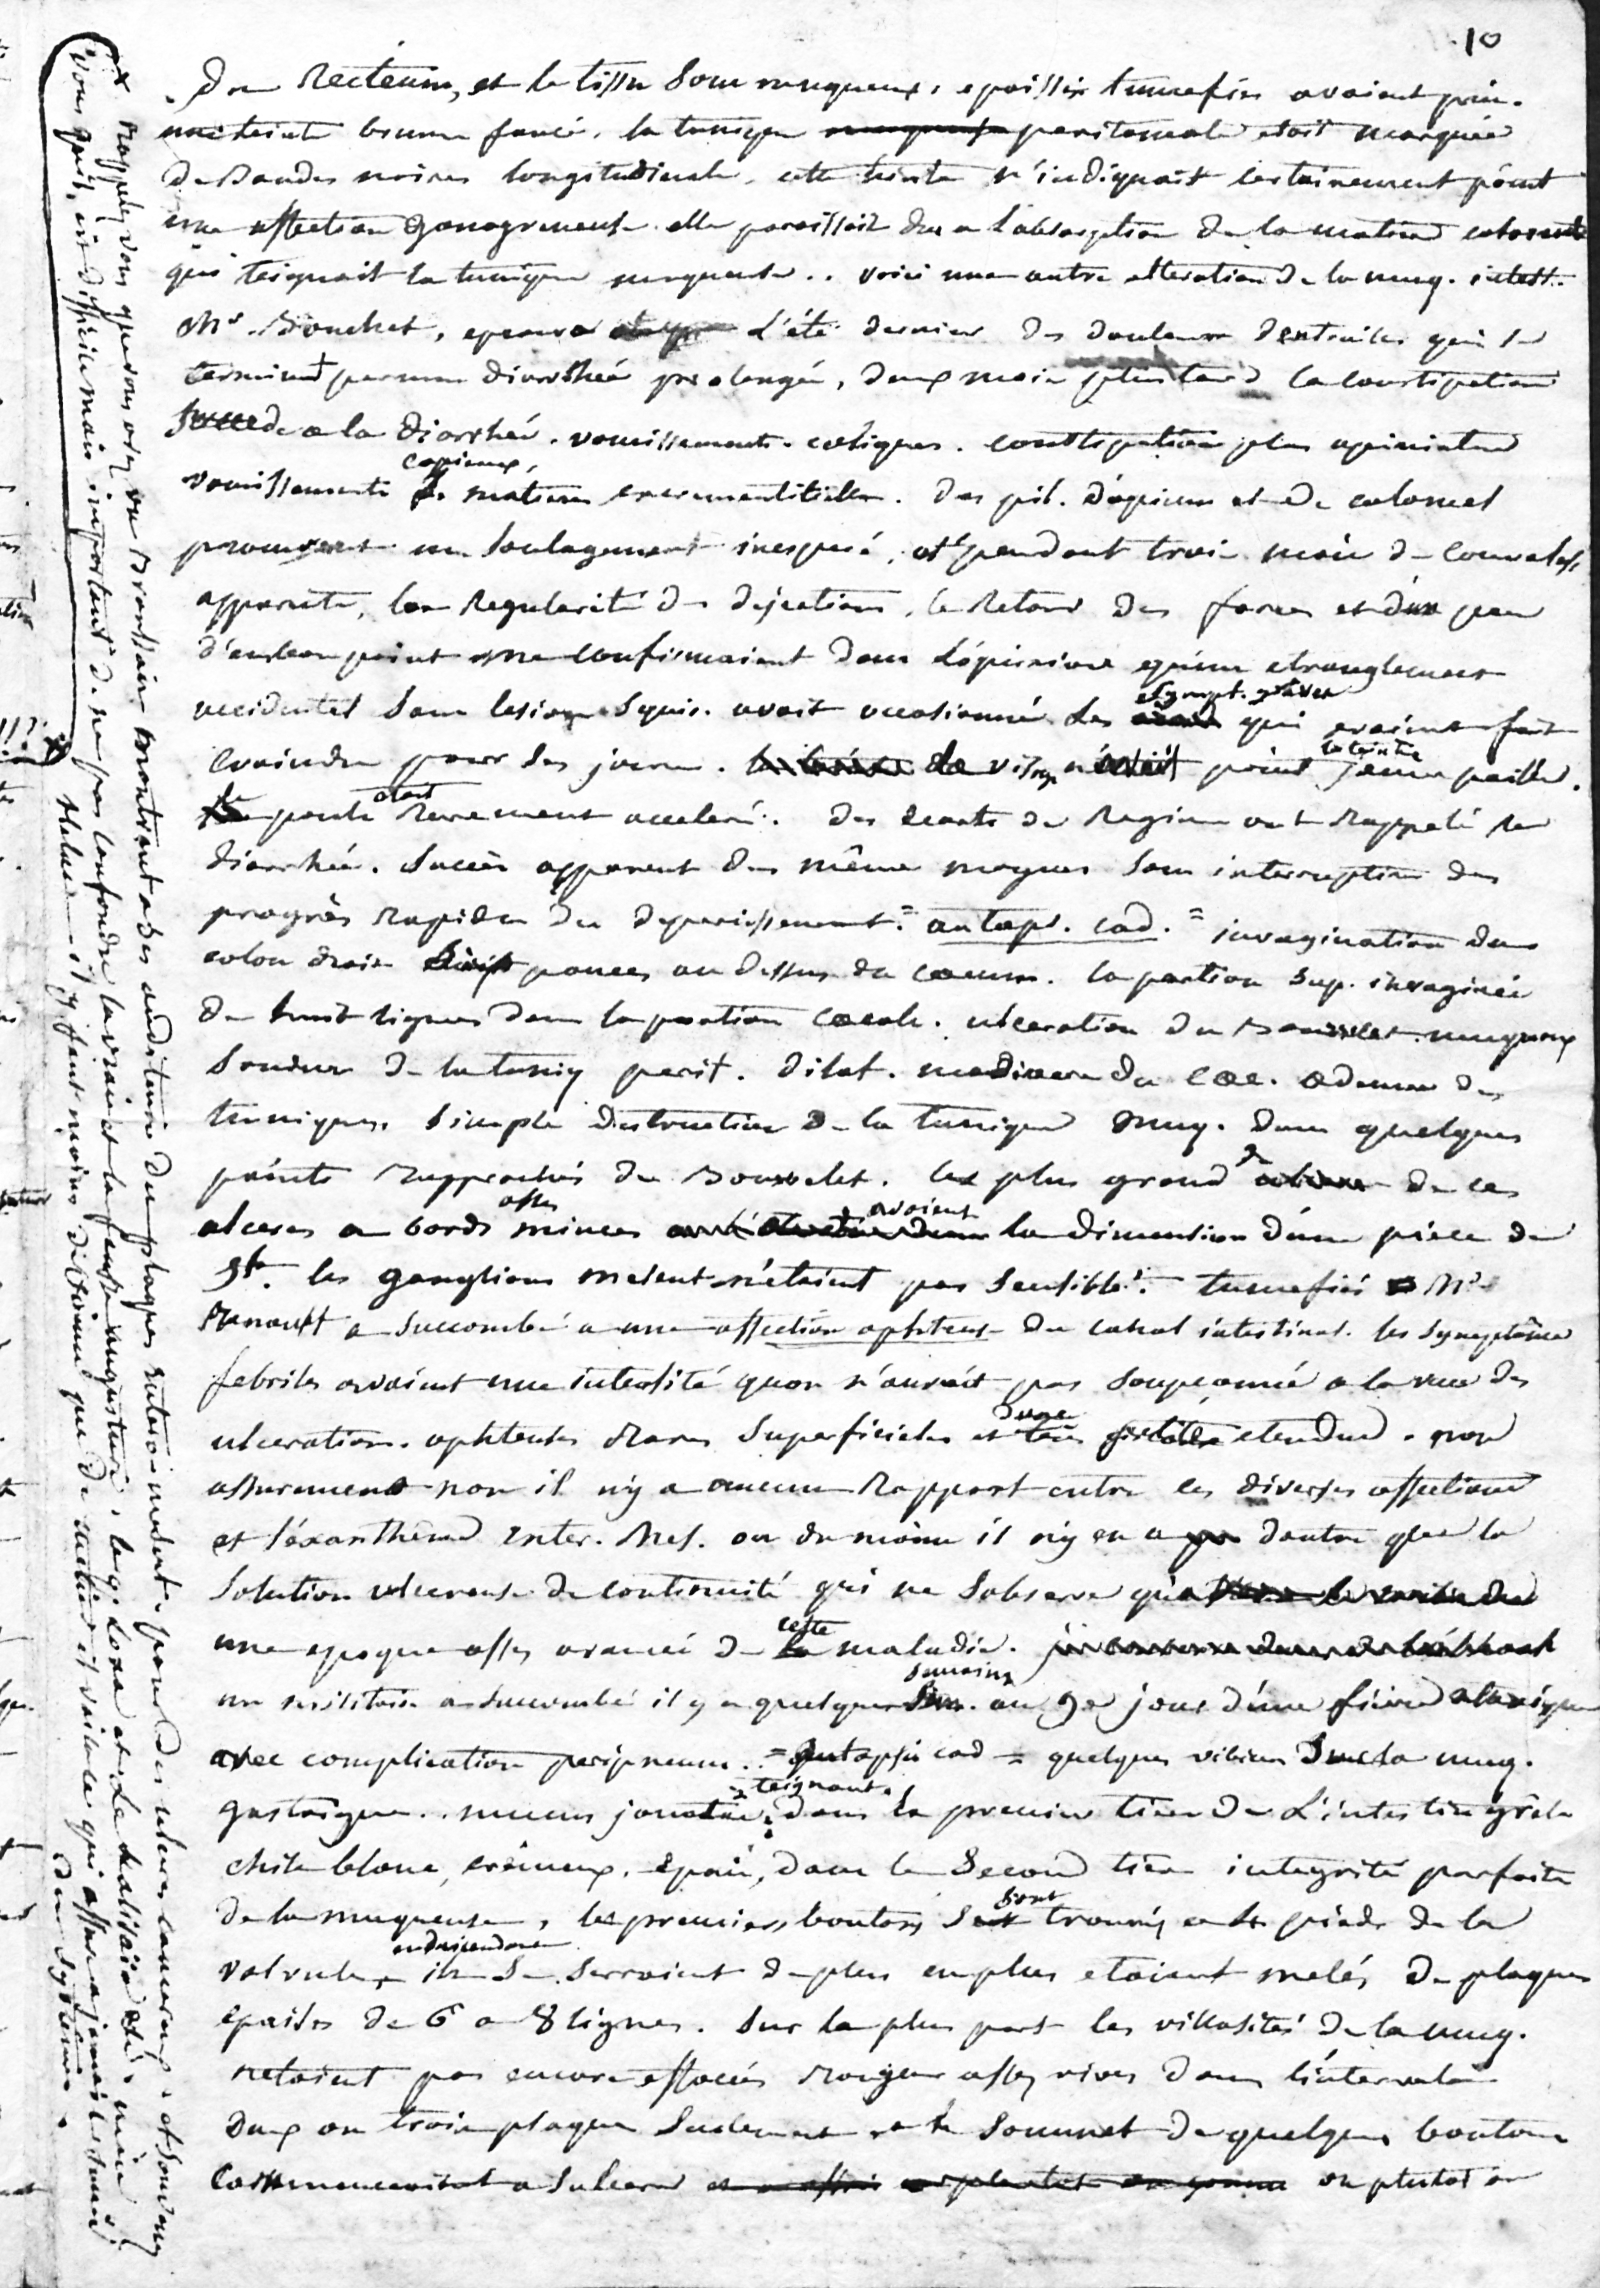 10
du Recteum, et le tissu sous muqueux, epaissis tumefiés avoient pris
une teinte brune foncé. la tunique peritoneale etoit marquée
de Bandes noires longitudinale. cette teinte n'indiquait certainement point
une affection gangreneuse elle paroissoit due a l'absorption de la matiere colorante
qui teignait la tunique muqueuse.. voici une autre alteration de la muq. intest.
Mr. Bouchet, eprouva l'été dernier des douleurs dentrailles qui se
terminent par une diarrhée prolongée, deux mois plus tard la constipation
succede a la diarrhée. vomissements. coliques. constipation plus opiniatre
vomissements copieux, de matieres excrementitielles. des pil. d'opium et de calomel
procurerent un soulagement inesperé, et pendant trois mois de convalesc.
apparente, la Regularité des dejections, le Retour des forces et d'un peu
d'embonpoint me confirmaient dans l'opinion qu'un etranglement
accidentel sans lesion squir. avoit occasionné les sympt. graves qui avaient fait
craindre pour ses jours. visage n'étoit point la teinte jaune paille.
le pouls etoit Rarement acceleré. des ecarts de Regime ont Rappelé la
diarrhée. succès apparent des même moyens sans interruption des
progrès Rapides du deperissement. = autops. cad. = invagination du
colon droit pouces au dessus du cœcum. la portion sup. invaginée
de huit lignes dans la portion cœcale. ulceration du Bourrelet muqueux
soudure de la tuniq perit. dilat. mediocre du cœc. œdeme des
tuniques. simple destruction de la tunique muq. dans quelques
points Rapprochés du Bourrelet. les plus grand de ces
ulceres a bords asses minces avoient la dimension d'une piece de
5f. les ganglions mesent. n'étaient pas sensiblet. tumefiés Mr
Renoult a succombé a une affection aphteuse du canal intestinal. les symptômes
febriles avaient une intensité quon n'auroit pas soupçonné a la vue des
ulcerations. aphteuses Rares superficieles et d'une petite etendue. non
assurement non il n'y a aucun Rapport entre les diverses affections
et l'éxanthême enter. Mes. ou du moins il n'y en a d'autre que la
solution ulcereuse de continuité qui ne sobserve qu'a
une epoque assez avancée de cette maladie.
un militaire a succombé il y a quelques semaines au 9e jour d'une fièvre ataxique
avec complication peripneum. = autopsie cad = quelques vibices sur la muq.
gastrique.. mucus jaunatre teignant. dans le premier tiers de l'intestin grêle
chile blanc, crêmeux, epais, dans le second tiers integrité parfaite
de la muqueuse, les premiers boutons sont trouvés a six pieds de la
valvule, en descendant ils se serraient de plus en plus etoient melés de plaques
epaisses de 6 a 8 lignes. sur la plus part les villosités de la muq.
netaient pas encore effacées Rougeur assez vives dans l'intervale
deux ou trois plaques seulement et le sommet de quelques boutons
commencaient a sulcerer ou plutot on
x Rappelez vous que vous avez vu Broussais montrant a ses auditoires des plaques enter. mesent. pour des ulceres cancereux. et souvenez
vous qu'il est difficile mais important de ne pas confondre la vraie et la fausse angusture. le qi. loxa et le . mais
helas il y a peut moins d'hommes que de metier et voila ce qui assure a jamais le succès
du systeme.